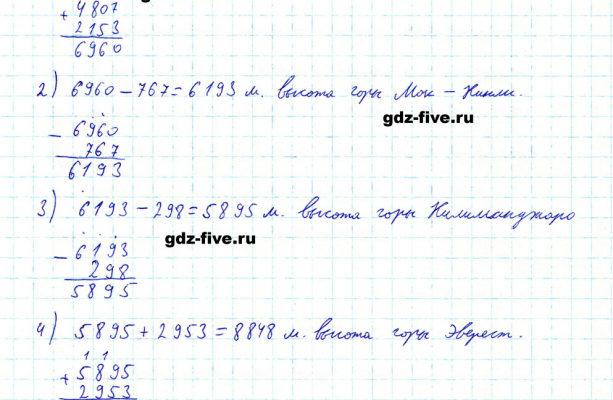 + 4807
2153
6960
2) 6960 - 767 = 6193 м. высота горы Мак - Кинли.
gdz-five.ru
- 6960
767
6193
3) 6193 - 298 = 5895 м. высота горы Килиманджаро
gdz-five.ru
- 6193
298
5895
4) 5895 + 2953 = 8848 м. высота горы Эверест.
1 1
+ 5895
2953